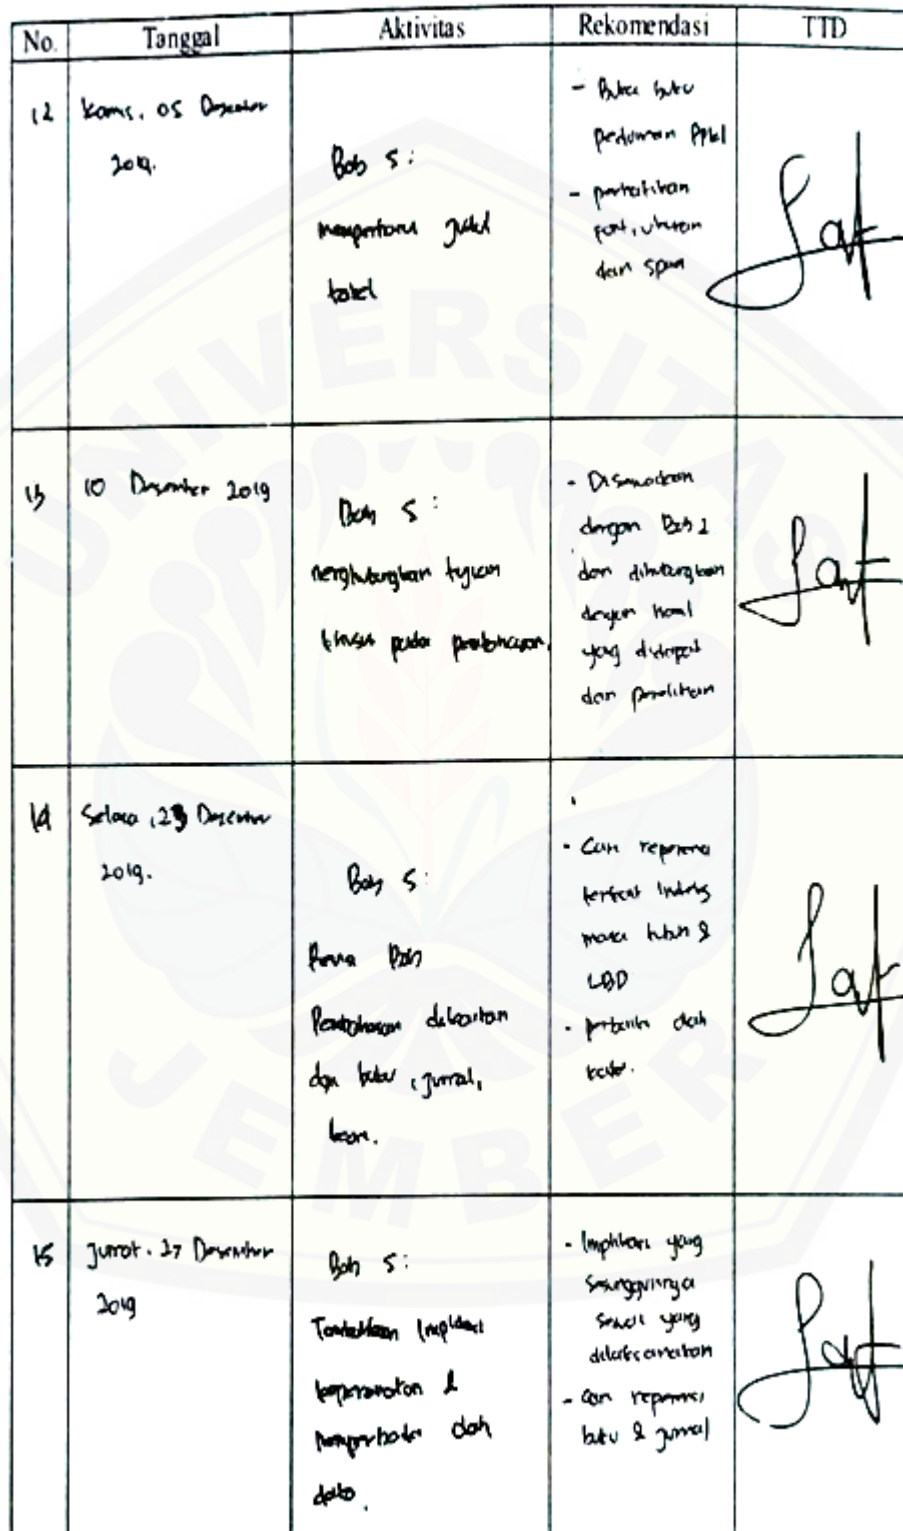 No. Tanggal Aktivitas Rekomendasi TTD
12 Kamis, 05 Desember
2019.
Bab 5:
judul
tabel
- Buka buku
pedoman PPKI
- perhatikan
font, ukuran
dan spasi
13 10 Desember 2019
Bab 5:
menghubungkan tujuan
khusus pada pembahasan.
- Disesuaikan
dengan Bab 2
dan dihubungkan
dengan hasil
yang didapat
dari penelitian
14 Selasa, 23 Desember
2019.
Bab 5:
Bab
Pembahasan dikaitkan
dgn buku, jurnal,
- Cari referensi
terkait Indeks
massa tubuh &
LBD
-
15 Jumat, 27 Desember
2019
Bab 5:
Tambahkan Implikasi
keperawatan &
memperbaiki dah
data.
- Implikasi yang
sesungguhnya
sesuai yang
dilaksanakan
- Cari referensi
buku & jurnal
UNIVERSITAS
JEMBER